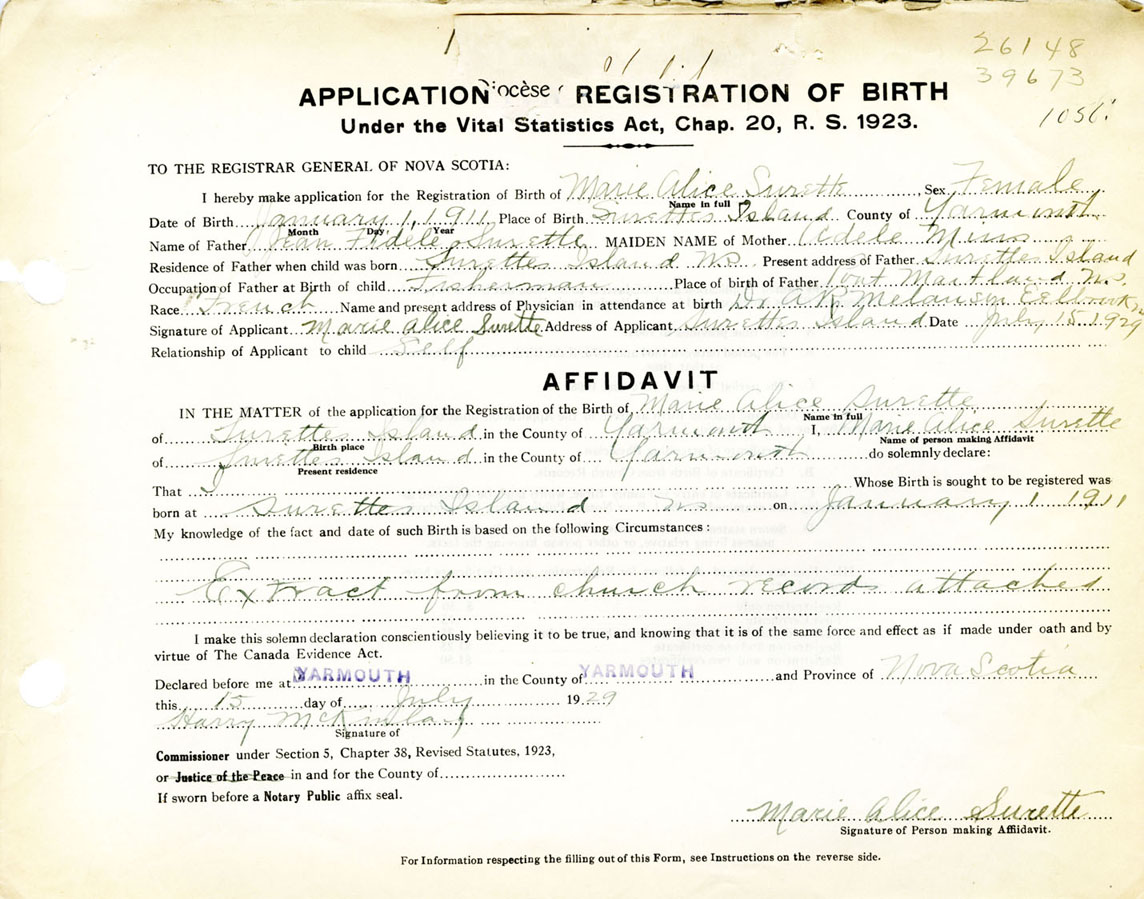 26148
39673
1056
APPLICATION iocèse REGISTRATION OF BIRTH
Under the Vital Statistics Act, Chap. 20, R. S. 1923.
TO THE REGISTRAR GENERAL OF NOVA SCOTIA:
I hereby make application for the Registration of Birth of Marie Alice Surette, Sex Female
Name in full
Date of Birth January 1, 1911 Place of Birth Surettes Island County of Yarmouth
Month Day Year
Name of Father Jean Fidele Surette MAIDEN NAME of Mother Adele Muis
Residence of Father when child was born Surettes Island NS Present address of Father Surettes Island
Occupation of Father at Birth of child Fisherman Place of birth of Father Port Maitland NS,
Race French Name and present address of Physician in attendance at birth Dr. A.R. Melanson Eelbrook
Signature of Applicant Marie Alice Surette Address of Applicant Surettes Island Date July 15 1929
Relationship of Applicant to child Self
AFFIDAVIT
IN THE MATTER of the application for the Registration of the Birth of Marie Alice Surette
Name in full
of Surettes Island in the County of Yarmouth I, Marie Alice Surette
Birth place Name of person making Affidavit
of Surettes Island in the County of Yarmouth do solemnly declare:
Present residence
That I Whose Birth is sought to be registered was
born at Surettes Island NS on January 1 1911
My knowledge of the fact and date of such Birth is based on the following Circumstances:
Extract from church records attached
I make this solemn declaration conscientiously believing it to be true, and knowing that it is of the same force and effect as if made under oath and by
virtue of The Canada Evidence Act.
Declared before me at YARMOUTH in the County of YARMOUTH and Province of Nova Scotia
this 15 day of July 1929
Harry
Signature of
Commissioner under Section 5, Chapter 38, Revised Statutes, 1923,
or Justice of the Peace in and for the County of
If sworn before a Notary Public affix seal.
Marie Alice Surette
Signature of Person making Affidavit.
For Information respecting the filling out of this Form, see Instructions on the reverse side.